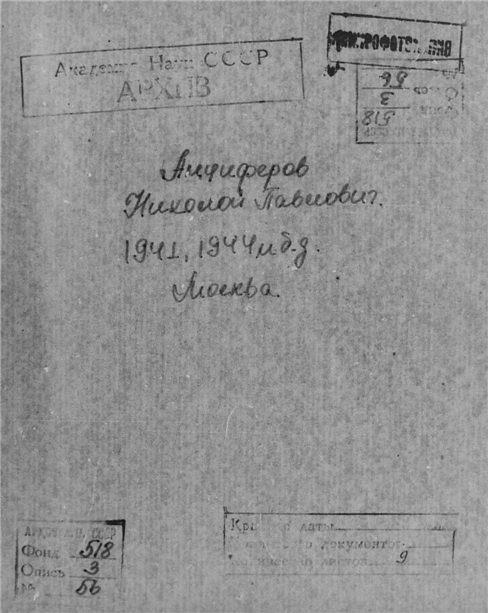 Академия Наук СССР
АРХИВ
МИКРОФОТОКОПИЯ
№ 56
Опись 3
Фонд 518
Анциферов
Николай Павлович.
1941, 1944 и б.д.
Москва.
АРХИВ А.Н. СССР
Фонд 518
Опись 3
№ 56
Крайние даты
Количество документов
Количество листов 9